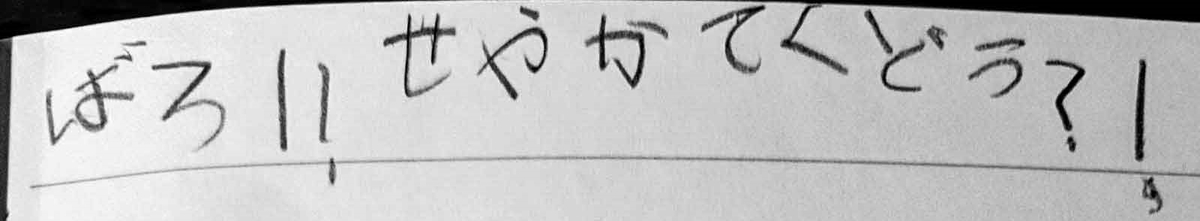 ばろ!! せやかてくどう?!